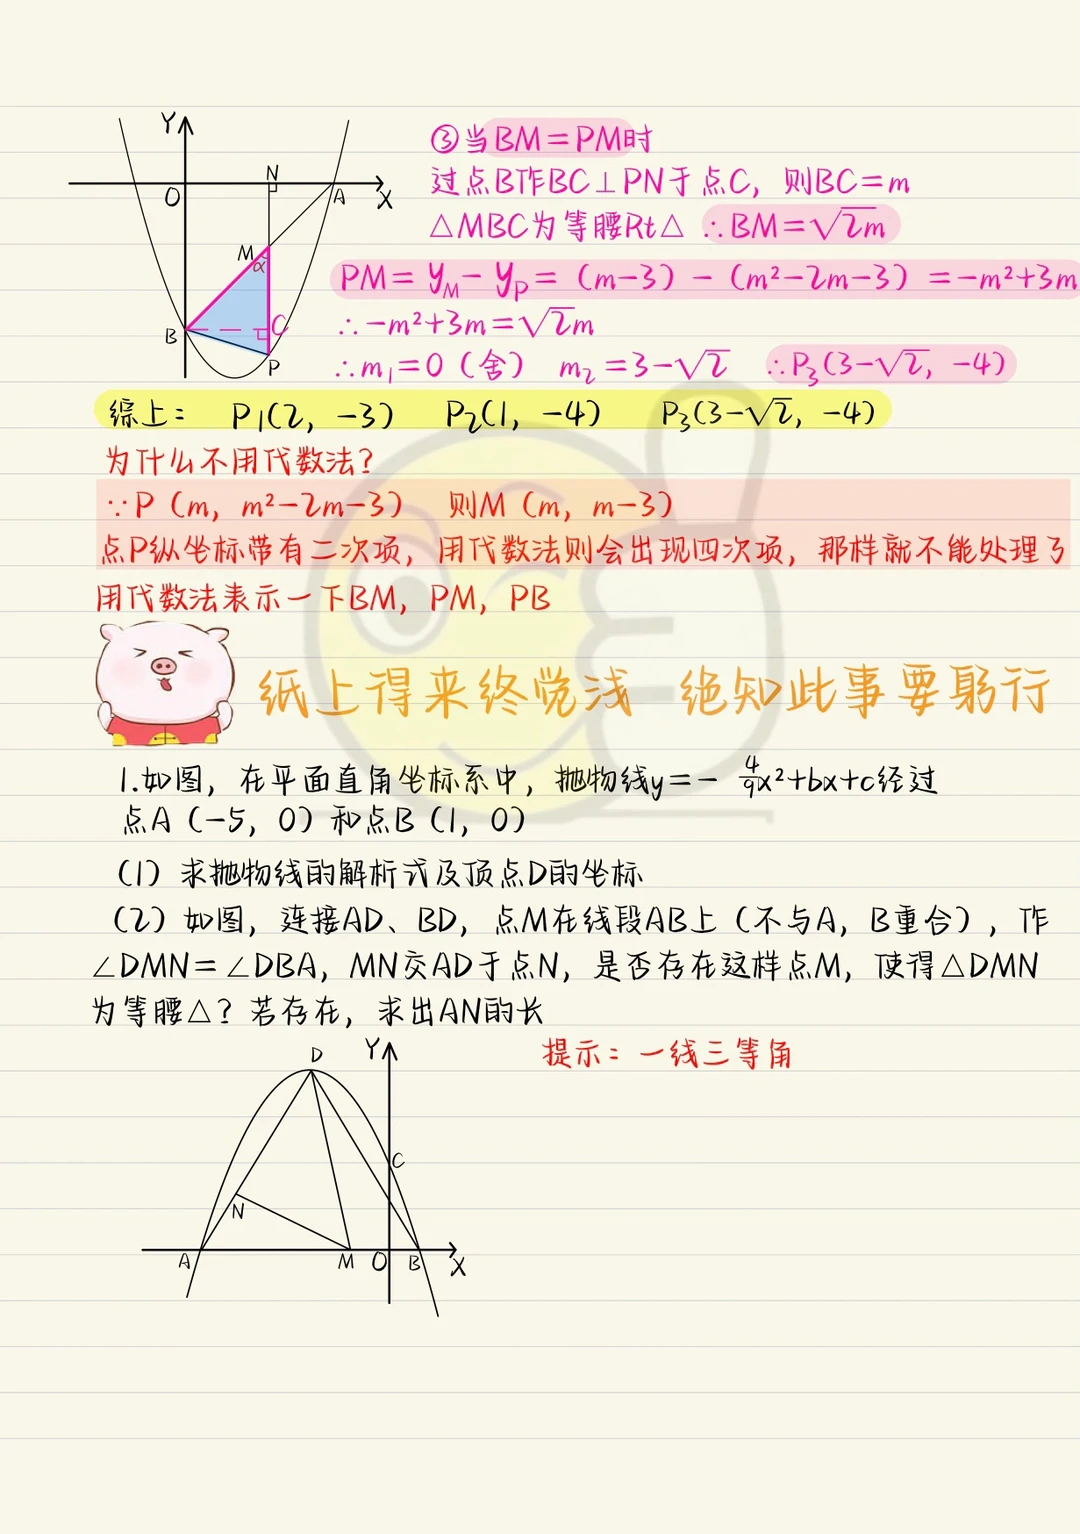 ③当BM=PM时
过点B作BC⊥PN于点C，则BC=m
△MBC为等腰Rt△ ∴BM=√2m
PM=y_M-y_P=(m-3)-(m²-2m-3)=-m²+3m
∴-m²+3m=√2m
∴m₁=0（舍） m₂=3-√2 ∴P₃(3-√2，-4)
Y
O
N
A
X
M
α
B
C
P
综上： P₁(2，-3) P₂(1，-4) P₃(3-√2，-4)
为什么不用代数法？
∵P（m，m²-2m-3） 则M（m，m-3）
点P纵坐标带有二次项，用代数法则会出现四次项，那样就不能处理了
用代数法表示一下BM，PM，PB
纸上得来终觉浅 绝知此事要躬行
1.如图，在平面直角坐标系中，抛物线y=-4/9x²+bx+c经过
点A（-5，0）和点B（1，0）
（1）求抛物线的解析式及顶点D的坐标
（2）如图，连接AD、BD，点M在线段AB上（不与A，B重合），作
∠DMN=∠DBA，MN交AD于点N，是否存在这样点M，使得△DMN
为等腰△？若存在，求出AN的长
提示：一线三等角
D
Y
C
N
A
M
O
B
X